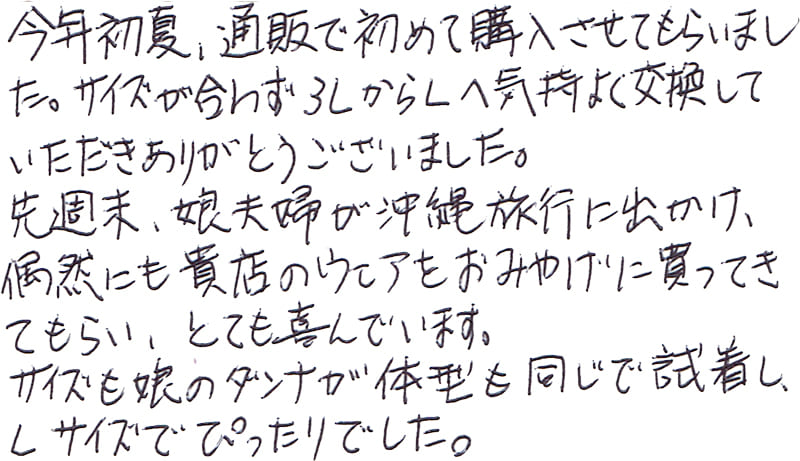 今年初夏、通販で初めて購入させてもらいまし
た。サイズが合わず3LからLへ気持よく交換して
いただきありがとうございました。
先週末、娘夫婦が沖縄旅行に出かけ、
偶然にも貴店のウェアをおみやげに買ってき
てもらい、とても喜んでいます。
サイズも娘のダンナが体型も同じで試着し、
Lサイズでぴったりでした。